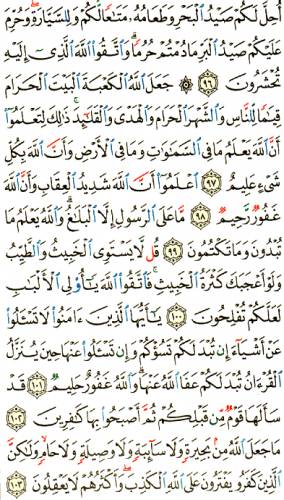 أُحِلَّ لَكُمْ صَيْدُ ٱلْبَحْرِ وَطَعَامُهُۥ مَتَٰعًا لَّكُمْ وَلِلسَّيَّارَةِ ۖ وَحُرِّمَ
عَلَيْكُمْ صَيْدُ ٱلْبَرِّ مَا دُمْتُمْ حُرُمًا ۗ وَٱتَّقُوا۟ ٱللَّهَ ٱلَّذِىٓ إِلَيْهِ
تُحْشَرُونَ ٩٦ ۞ جَعَلَ ٱللَّهُ ٱلْكَعْبَةَ ٱلْبَيْتَ ٱلْحَرَامَ
قِيَٰمًا لِّلنَّاسِ وَٱلشَّهْرَ ٱلْحَرَامَ وَٱلْهَدْىَ وَٱلْقَلَٰٓئِدَ ۚ ذَٰلِكَ لِتَعْلَمُوٓا۟
أَنَّ ٱللَّهَ يَعْلَمُ مَا فِى ٱلسَّمَٰوَٰتِ وَمَا فِى ٱلْأَرْضِ وَأَنَّ ٱللَّهَ بِكُلِّ
شَىْءٍ عَلِيمٌ ٩٧ ٱعْلَمُوٓا۟ أَنَّ ٱللَّهَ شَدِيدُ ٱلْعِقَابِ وَأَنَّ ٱللَّهَ
غَفُورٌ رَّحِيمٌ ٩٨ مَّا عَلَى ٱلرَّسُولِ إِلَّا ٱلْبَلَٰغُ ۗ وَٱللَّهُ يَعْلَمُ مَا
تُبْدُونَ وَمَا تَكْتُمُونَ ٩٩ قُل لَّا يَسْتَوِى ٱلْخَبِيثُ وَٱلطَّيِّبُ
وَلَوْ أَعْجَبَكَ كَثْرَةُ ٱلْخَبِيثِ ۚ فَٱتَّقُوا۟ ٱللَّهَ يَٰٓأُو۟لِى ٱلْأَلْبَٰبِ
لَعَلَّكُمْ تُفْلِحُونَ ١٠٠ يَٰٓأَيُّهَا ٱلَّذِينَ ءَامَنُوا۟ لَا تَسْـَٔلُوا۟
عَنْ أَشْيَآءَ إِن تُبْدَ لَكُمْ تَسُؤْكُمْ وَإِن تَسْـَٔلُوا۟ عَنْهَا حِينَ يُنَزَّلُ
ٱلْقُرْءَانُ تُبْدَ لَكُمْ عَفَا ٱللَّهُ عَنْهَا ۗ وَٱللَّهُ غَفُورٌ حَلِيمٌ ١٠١ قَدْ
سَأَلَهَا قَوْمٌ مِّن قَبْلِكُمْ ثُمَّ أَصْبَحُوا۟ بِهَا كَٰفِرِينَ ١٠٢
مَا جَعَلَ ٱللَّهُ مِنۢ بَحِيرَةٍ وَلَا سَآئِبَةٍ وَلَا وَصِيلَةٍ وَلَا حَامٍ ۙ وَلَٰكِنَّ
ٱلَّذِينَ كَفَرُوا۟ يَفْتَرُونَ عَلَى ٱللَّهِ ٱلْكَذِبَ ۖ وَأَكْثَرُهُمْ لَا يَعْقِلُونَ ١٠٣